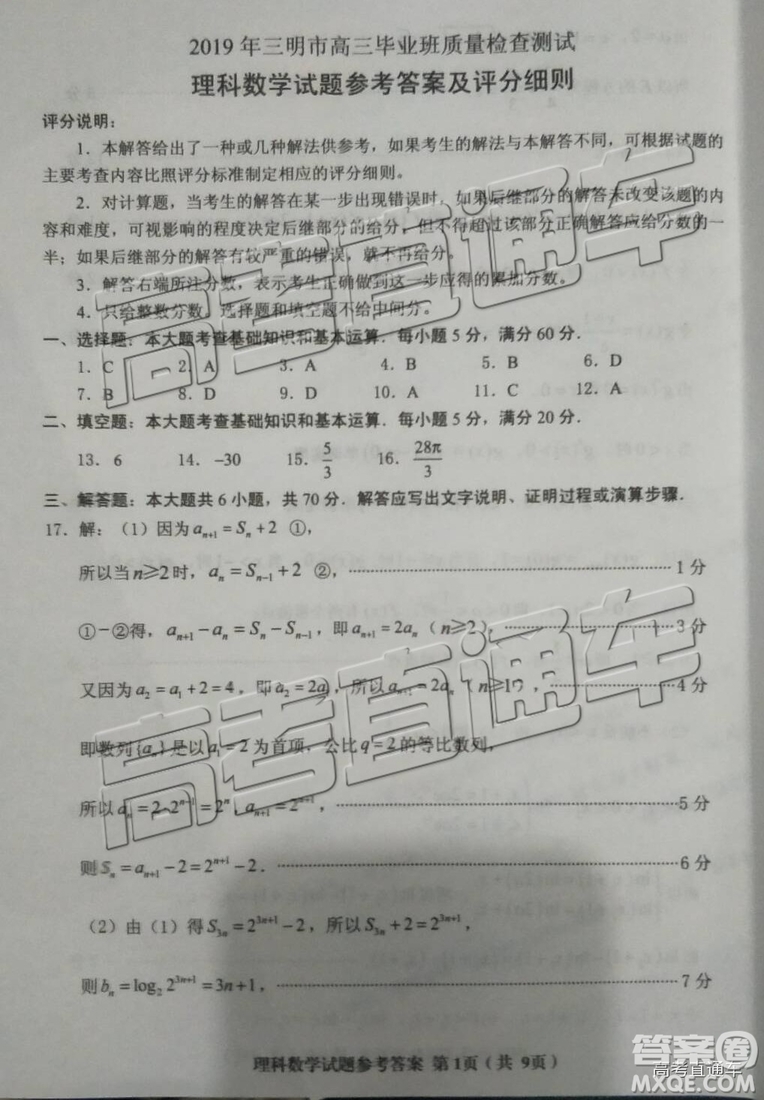 2019 年三明市高三毕业班质量检查测试
理科数学试题参考答案及评分细则
评分说明：
1．本解答给出了一种或几种解法供参考，如果考生的解法与本解答不同，可根据试题的
主要考查内容比照评分标准制定相应的评分细则。
2．对计算题，当考生的解答在某一步出现错误时，如果后继部分的解答未改变该题的内
容和难度，可视影响的程度决定后继部分的给分，但不得超过该部分正确解答应给分数的一
半；如果后继部分的解答有较严重的错误，就不再给分。
3．解答右端所注分数，表示考生正确做到这一步应得的累加分数。
4．只给整数分数。选择题和填空题不给中间分。
一、选择题：本大题考查基础知识和基本运算．每小题 5 分，满分 60 分．
1．C 2．A 3．A 4．B 5．B 6．D
7．B 8．D 9．D 10．A 11．C 12．A
二、填空题：本大题考查基础知识和基本运算．每小题 5 分，满分 20 分．
13．6 14．-30 15．5/3 16．28π/3
三、解答题：本大题共 6 小题，共 70 分．解答应写出文字说明、证明过程或演算步骤．
17．解：（1）因为 aₙ₊₁ = Sₙ + 2 ①，
所以当 n≥2 时，aₙ = Sₙ₋₁ + 2 ②，……1 分
①－②得，aₙ₊₁ − aₙ = Sₙ − Sₙ₋₁，即 aₙ₊₁ = 2aₙ（n≥2），……3 分
又因为 a₂ = a₁ + 2 = 4，即 a₂ = 2a₁，所以 aₙ₊₁ = 2aₙ（n≥1），……4 分
即数列{aₙ}是以 a₁ = 2 为首项、公比 q = 2 的等比数列，
所以 aₙ = 2·2ⁿ⁻¹ = 2ⁿ，aₙ₊₁ = 2ⁿ⁺¹，……5 分
则 Sₙ = aₙ₊₁ − 2 = 2ⁿ⁺¹ − 2．……6 分
（2）由（1）得 S₃ₙ = 2³ⁿ⁺¹ − 2，所以 S₃ₙ + 2 = 2³ⁿ⁺¹，
则 bₙ = log₂ 2³ⁿ⁺¹ = 3n + 1，……7 分
理科数学试题参考答案 第 1页（共 9页）
高考直通车
高考直通车
答案圈
高考直通车
MXQE.COM